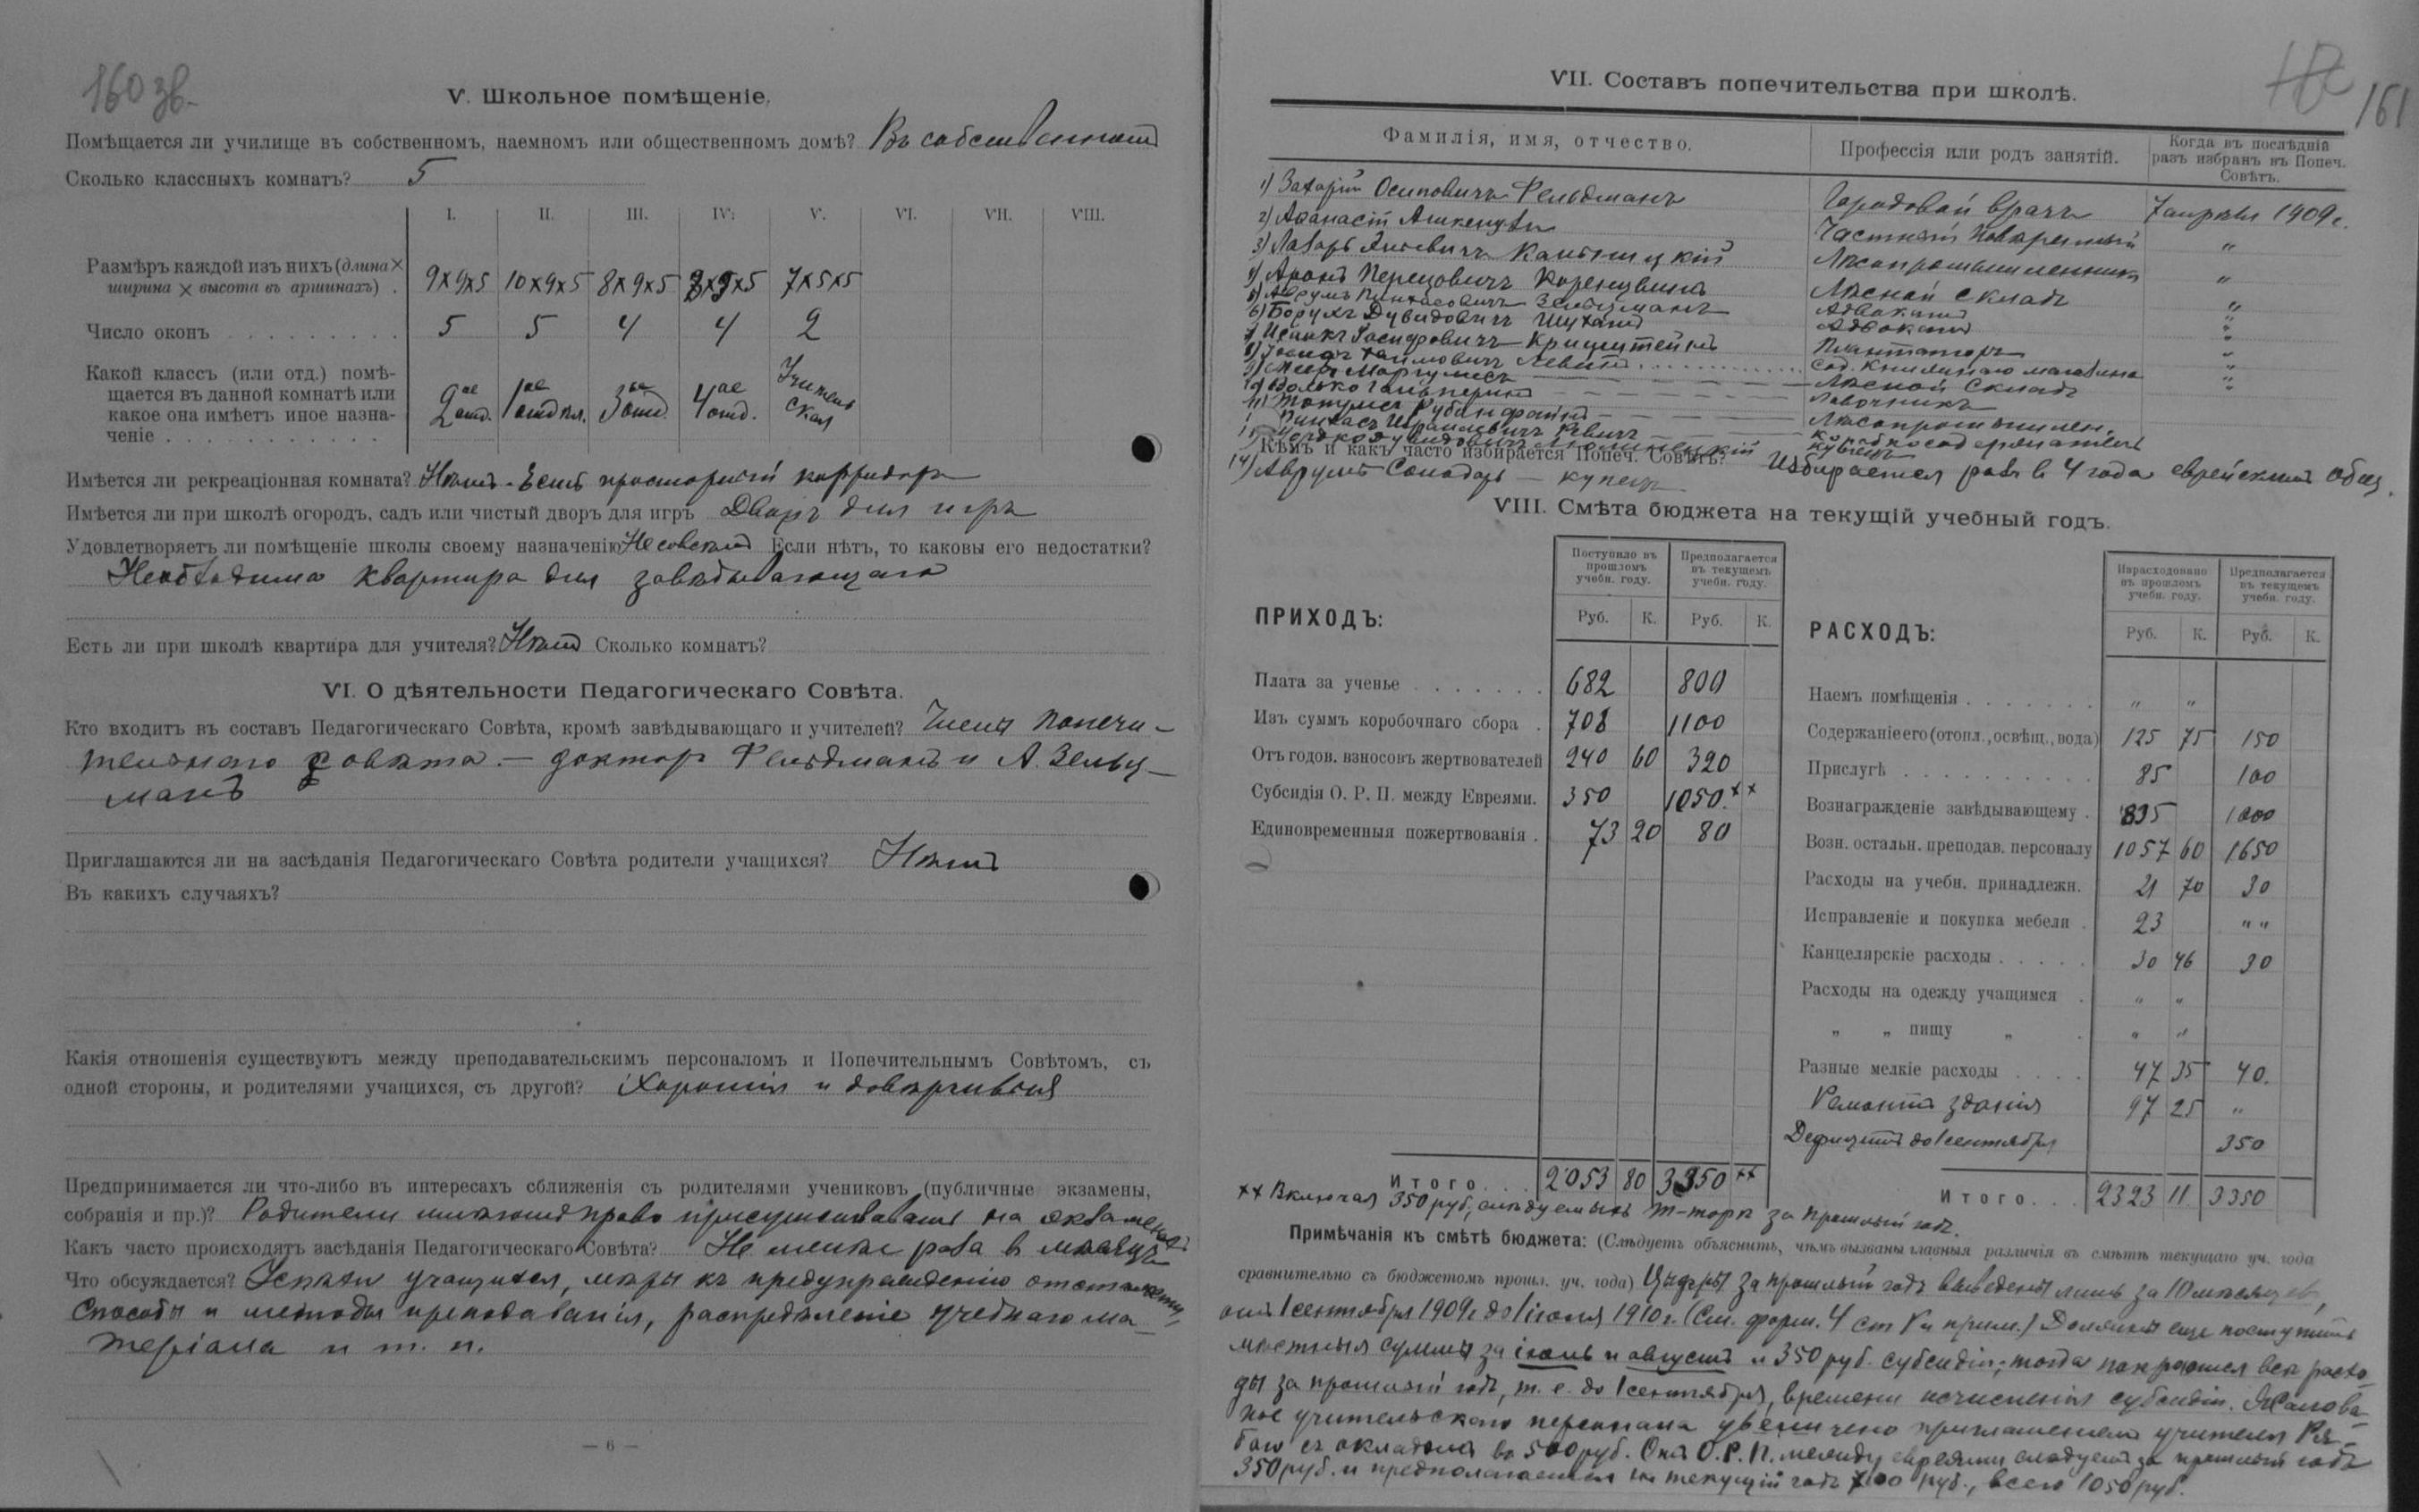 160 зв.
V. Школьное помѣщеніе.
Помѣщается ли училище въ собственномъ, наемномъ или общественномъ домѣ? Въ собственномъ
Сколько классныхъ комнатъ? 5
I. II. III. IV. V. VI. VII. VIII.
Размѣръ каждой изъ нихъ (длина ×
ширина × высота въ аршинахъ) . 9x9x5 10x9x5 8x9x5 8x9x5 7x5x5
Число оконъ . . . . . . . . . 5 5 4 4 2
Какой классъ (или отд.) помѣ-
щается въ данной комнатѣ или
какое она имѣетъ иное назна-
ченіе . . . . . . . . . . .
2ое отд. 1ое отд. 3 отд. 4ое отд. Учительская
Имѣется ли рекреаціонная комната? Нѣтъ. Есть просторный корридоръ
Имѣется ли при школѣ огородъ, садъ или чистый дворъ для игръ Дворъ для игръ
Удовлетворяетъ ли помѣщеніе школы своему назначенію Не совсѣмъ Если нѣтъ, то каковы его недостатки?
Необходима квартира для завѣдывающаго
Есть ли при школѣ квартира для учителя? Нѣтъ Сколько комнатъ?
VI. О дѣятельности Педагогическаго Совѣта.
Кто входитъ въ составъ Педагогическаго Совѣта, кромѣ завѣдывающаго и учителей? Члены попечи-
тельнаго совѣта. — докторъ Фельдманъ и А. Зельц-
манъ
Приглашаются ли на засѣданія Педагогическаго Совѣта родители учащихся? Нѣтъ
Въ какихъ случаяхъ?
Какія отношенія существуютъ между преподавательскимъ персоналомъ и Попечительнымъ Совѣтомъ, съ
одной стороны, и родителями учащихся, съ другой? Хорошія и довѣрчивыя
Предпринимается ли что-либо въ интересахъ сближенія съ родителями учениковъ (публичные экзамены,
собранія и пр.)? Родители имѣютъ право присутствовать на экзаменахъ
Какъ часто происходятъ засѣданія Педагогическаго Совѣта? Не менѣе раза в мѣсяцъ
Что обсуждается? Успѣхи учащихся, мѣры къ предупрежденію отсталости,
способы и методы преподаванія, распредѣленіе учебнаго ма-
теріала и т. п.
— 6 —
161
VII. Составъ попечительства при школѣ.
Фамилія, имя, отчество. Профессія или родъ занятій. Когда въ послѣдній
разъ избранъ въ Попеч.
Совѣтъ.
1) Захарій Осиповичъ Фельдманъ Городовой врачъ 7 апрѣля 1909 г.
2) Афанасій Ашкенази Частный повѣренный "
3) Лазарь Каминицкій Лѣсопромышленникъ "
4) Аронъ Перецовичъ Лѣсной складъ "
5) Аврумъ Пинхасовичъ Зельцманъ Адвокатъ "
6) Борухъ Дувидовичъ Адвокатъ "
7) Исаакъ Кришутейнъ Плантаторъ "
8) Хаимовичъ Левитъ сод. книжнаго магазина "
9) Меер Моргулисъ Лѣсной Складъ "
10) Волько Гальперинъ Лавочникъ
11) Рубинфайнъ Лѣсопромышлен.
Пинхасъ Израилевичъ
Кѣмъ и какъ часто избирается Попеч. Совѣтъ? Избирается разъ в 4 года еврейским общ.
14) Аврумъ Солодарь — купецъ
VIII. Смѣта бюджета на текущій учебный годъ.
ПРИХОДЪ:
Поступило въ прошломъ учебн. году. Предполагается въ текущемъ учебн. году.
Руб. К. Руб. К.
Плата за ученье . . . . . . . 682 800
Изъ суммъ коробочнаго сбора . 708 1100
Отъ годов. взносовъ жертвователей 240 60 320
Субсидія О. Р. П. между Евреями. 350 1050.××
Единовременныя пожертвованія . 73 20 80
Итого. . . 2053 80 3350 ××
РАСХОДЪ:
Израсходовано въ прошломъ учебн. году. Предполагается въ текущемъ учебн. году.
Руб. К. Руб. К.
Наемъ помѣщенія . . . . . . . " "
Содержаніе его (отопл., освѣщ., вода) 125 75 150
Прислугѣ . . . . . . . . . . 85 100
Вознагражденіе завѣдывающему . 835 1000
Возн. остальн. преподав. персоналу 1057 60 1650
Расходы на учебн. принадлежн. 21 70 30
Исправленіе и покупка мебели . 23 " "
Канцелярскіе расходы . . . . . 30 46 30
Расходы на одежду учащимся . " "
" " пищу " . " "
Разные мелкіе расходы . . . . 47 35 40.
Ремонтъ зданія 97 25 "
Дефицитъ до 1 сентября 350
Итого. . . 2323 11 3350
×× Включая 350 руб., слѣдуемыхъ за прошлый годъ.
Примѣчанія къ смѣтѣ бюджета: (Слѣдуетъ объяснить, чѣмъ вызваны главныя различія въ смѣтѣ текущаго уч. года
сравнительно съ бюджетомъ прошл. уч. года) Цифры за прошлый годъ выведены лишь за 10 мѣсяцев,
отъ 1 сентября 1909 г. до 1 іюля 1910 г. (См. форм. 4 ст. V и прим.) Должны еще поступить
мѣстныя суммы за іюль и августъ и 350 руб. субсидіи; тогда покроются всѣ расхо-
ды за прошлый годъ, т. е. до 1 сентября, времени исчисленія субсидіи. Жалова-
ніе учительскаго персонала увеличено приглашеніемъ учителя Ря-
баго съ окладомъ въ 500 руб. От О.Р.П. между евреями слѣдуетъ за прошлый годъ
350 руб. и предполагается на текущій годъ 700 руб., всего 1050 руб.